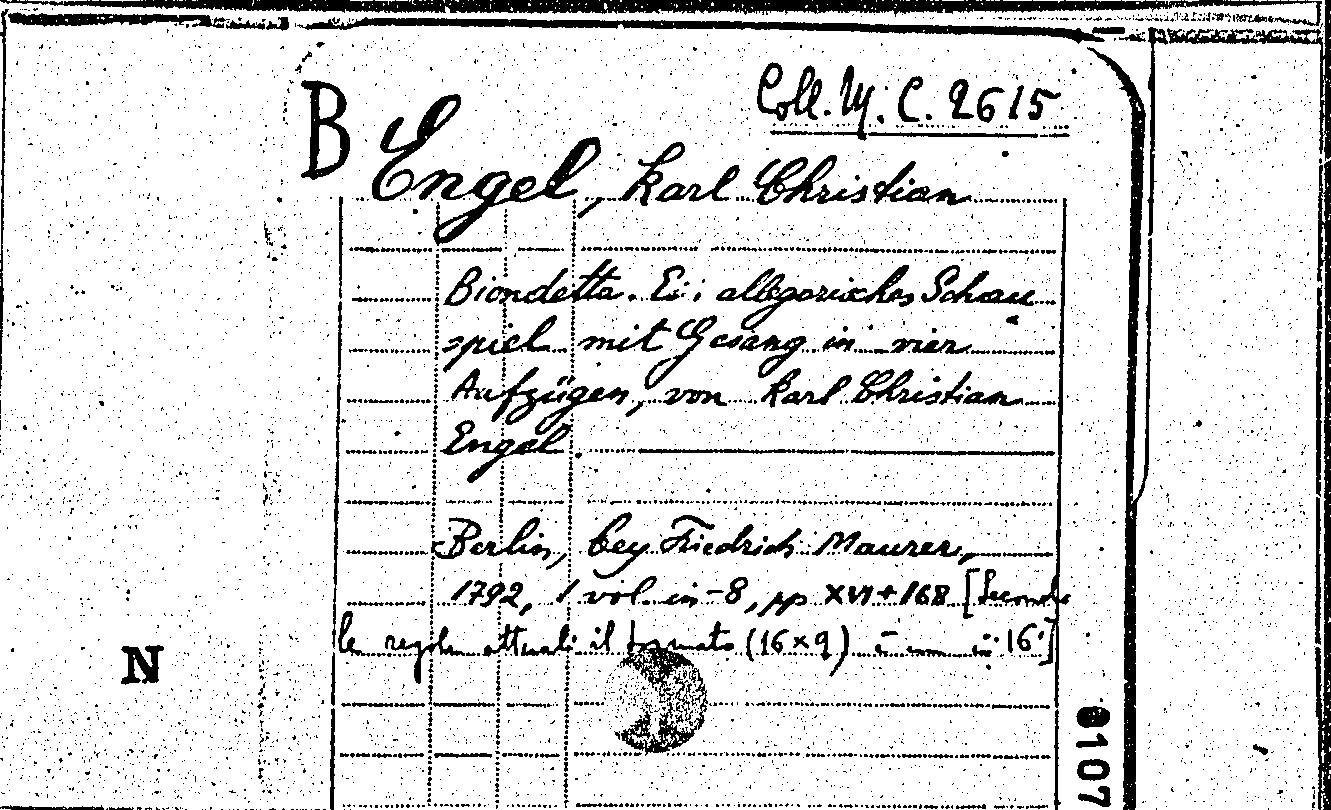 Coll. M. C. 2615
B Engel, Karl Christian
Biondetta. Ein allegorisches Schau
spiel mit Gesang in vier
Aufzügen, von Karl Christian
Engel.
Berlin, bey Friedrich Maurer,
1792, 1 vol. in-8, pp XVI+168 [Secondo
le regole attuali il formato (16×9) è in 16°]
N
8107